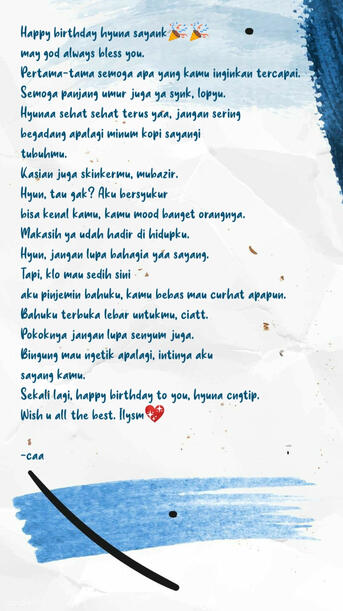 Happy birthday hyuna sayank🎉🎉
may god always bless you.
Pertama-tama semoga apa yang kamu inginkan tercapai.
Semoga panjang umur juga ya synk, lopyu.
Hyunaa sehat sehat terus yaa, jangan sering
begadang apalagi minum kopi sayangi
tubuhmu.
Kasian juga skinkermu, mubazir.
Hyun, tau gak? Aku bersyukur
bisa kenal kamu, kamu mood banget orangnya.
Makasih ya udah hadir di hidupku.
Hyun, jangan lupa bahagia yaa sayang.
Tapi, klo mau sedih sini
aku pinjemin bahuku, kamu bebas mau curhat apapun.
Bahuku terbuka lebar untukmu, ciatt.
Pokoknya jangan lupa senyum juga.
Bingung mau ngetik apalagi, intinya aku
sayang kamu.
Sekali lagi, happy birthday to you, hyuna cngtip.
Wish u all the best. Ilysm💖
-caa